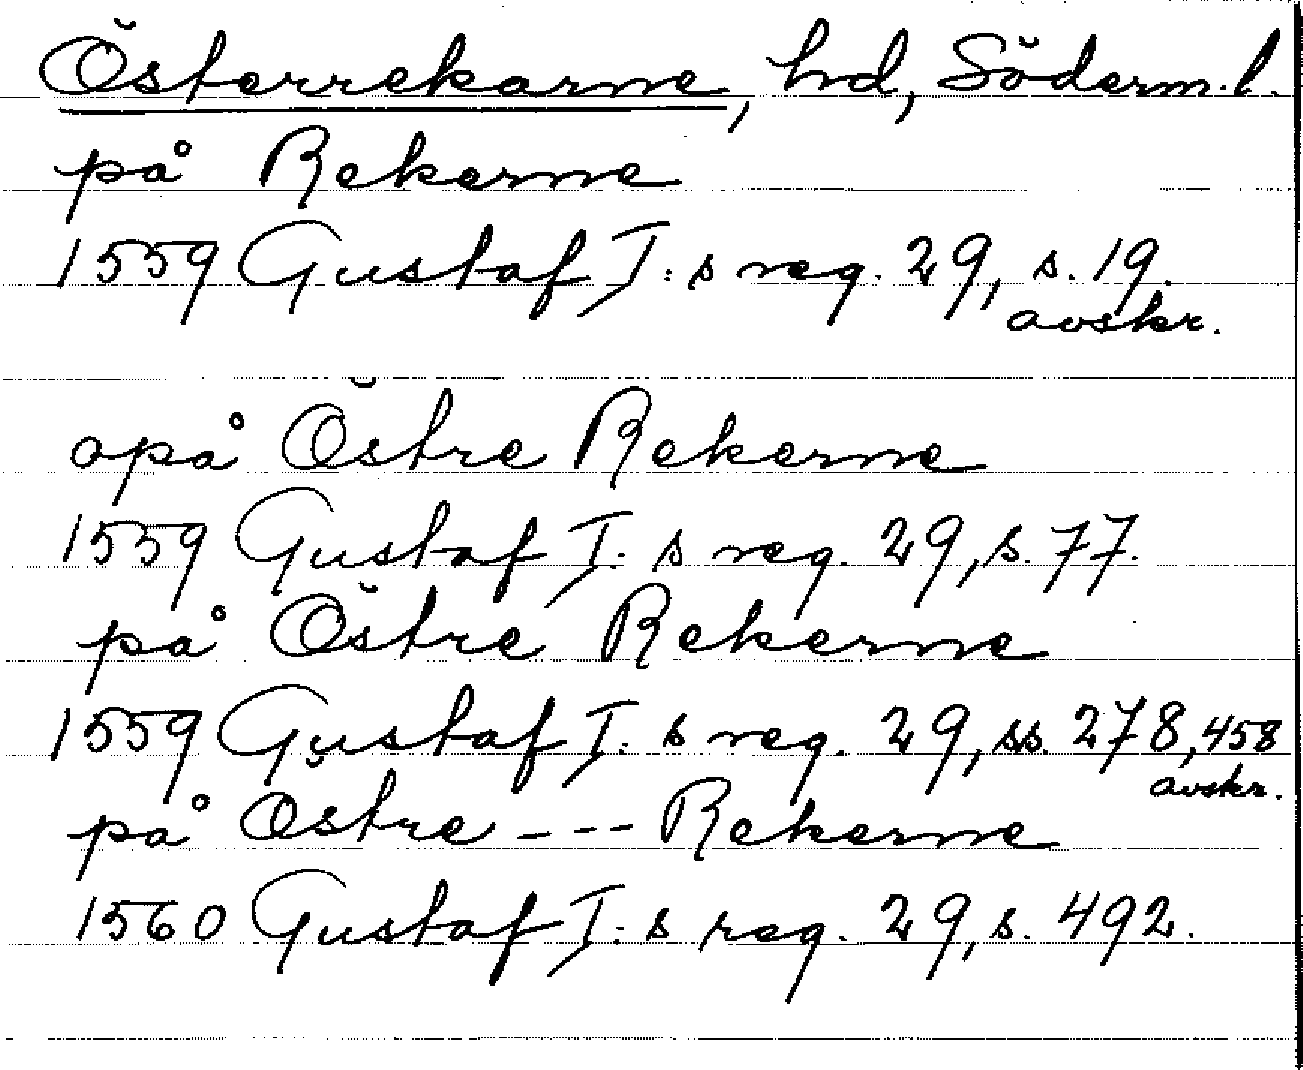 Österrekarne, hd, Söderm. l.
på Rekerne
1559 Gustaf I:s reg. 29, s. 19.
avskr.
opå Östre Rekerne
1559 Gustaf I:s reg. 29, s. 77.
på Östre Rekerne
1559 Gustaf I:s reg. 29, ss. 278, 458
avskr.
på Östre --- Rekerne
1560 Gustaf I:s reg. 29, s. 492.